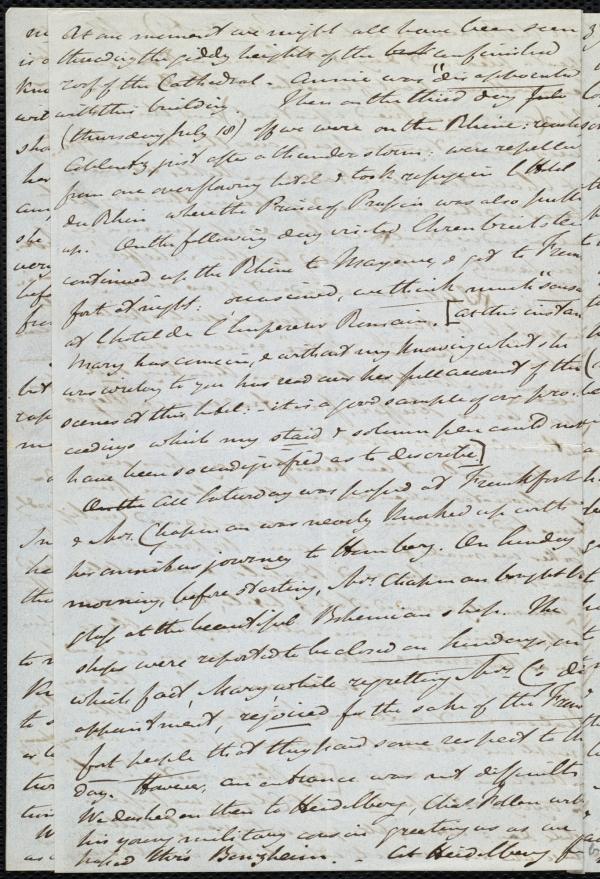 At one moment we might all have been seen
threading the giddy heights of the best unfinished
roof of the Cathedral. Annie was "disappointed
with this building. Then on the third day July
(Thursday July 18) off we were on the Rhine: reached
Coblentz just after a thunder storm: were repelled
from one overflowing hotel & took refuge in l'Hotel
du Rhin where the Prince of Prussia was also put
up. On the following day visited Ehrenbreitstein
continued up the Rhine to Mayence, & got to Frank
fort at night: occasioned, we think much "sensa
at l'hotel de l'Empereur Romain. [at this instant
Mary has come in, & without my knowing what she
was writing to you has read me her full account of the
scenes at this hotel: - it is a good sample of our pro-
ceedings which my staid & solemn pen could not
have been so undignified as to describe.]
On the All Saturday was passed at Frankfort
& Mrs. Chapman was nearly knocked up with
her omnibus journey to Homberg. On Sunday
morning, before starting, Mrs Chapman bought
glass at the beautiful Bohemian shop. The
shops were reported to be closed on Sundays, at
which fact, Mary while regretting Mrs C's dis
appointment, rejoiced for the sake of the Frank
fort people that they paid some respect to the
day. However, an entrance was not difficult.
We dashed on then to Heidelberg, Chas Follen with
his young military cousin greeting us as we
passed thro' Bensheim. - At Heidelberg